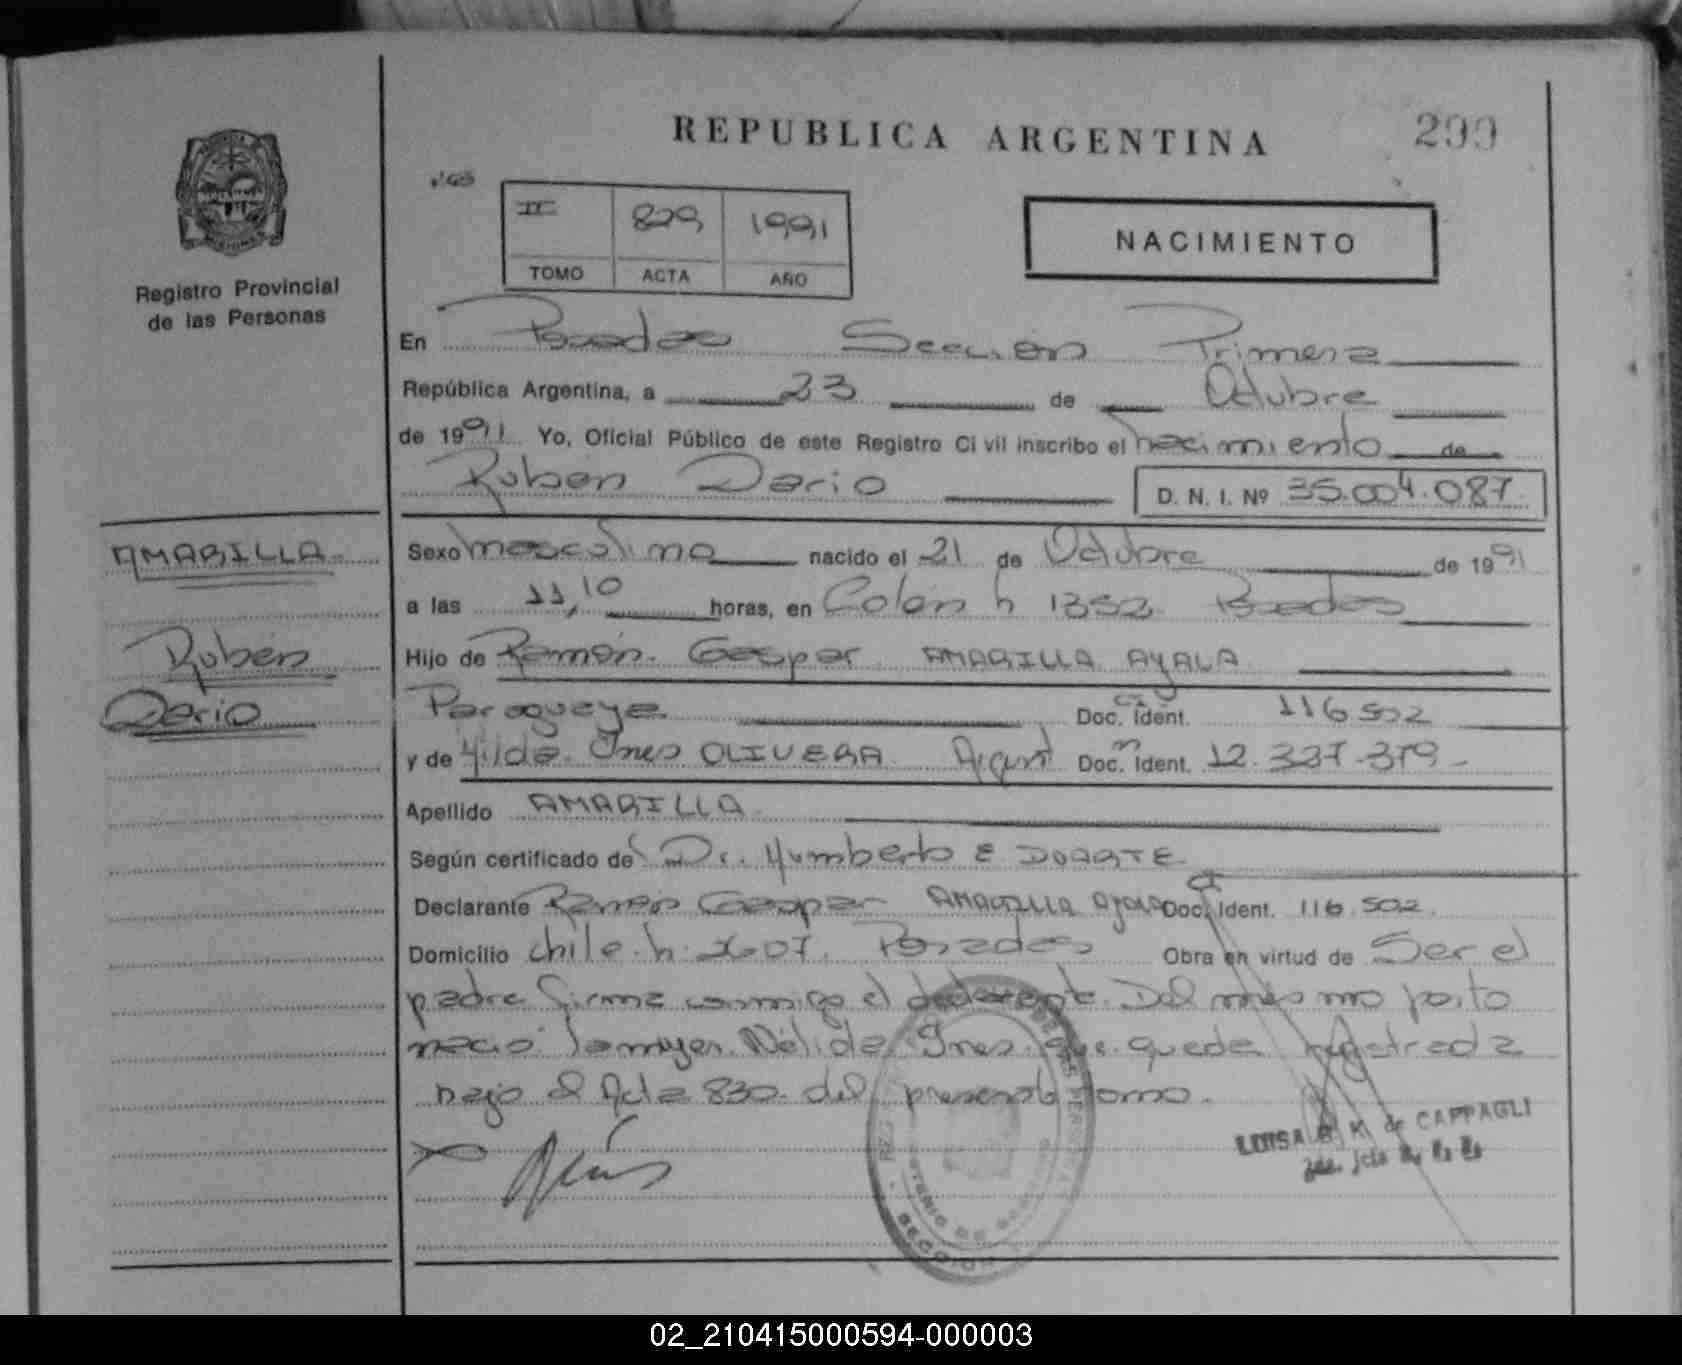 REPUBLICA ARGENTINA
299
II 829 1991
TOMO ACTA AÑO
NACIMIENTO
Registro Provincial
de las Personas
En Posadas Sección Primera
República Argentina, a 23 de Octubre
de 1991 Yo, Oficial Público de este Registro Civil inscribo el nacimiento de
Rubén Dario D. N. I. Nº 35.004.087
AMARILLA
Rubén
Dario
Sexo masculino nacido el 21 de Octubre de 1991
a las 11,10 horas, en Colón n 1352 Posadas
Hijo de Ramón Gaspar AMARILLA AYALA
Paraguaya Doc. Ident. CI 116.502
y de Hilda Ines OLIVERA Argent Doc. Ident. 12.337.379
Apellido AMARILLA
Según certificado de Dr. Humberto E DUARTE
Declarante Ramón Gaspar AMARILLA Ayala Doc. Ident. CI 116.502
Domicilio Chile n 2607 Posadas Obra en virtud de Ser el
padre firma conmigo el declarante. Del mismo parto
nació la mujer Nélida Ines que queda registrada
bajo el Acta 830 del presente tomo.
LUISA B K. de CAPPAGLI
SECCION
02_210415000594-000003